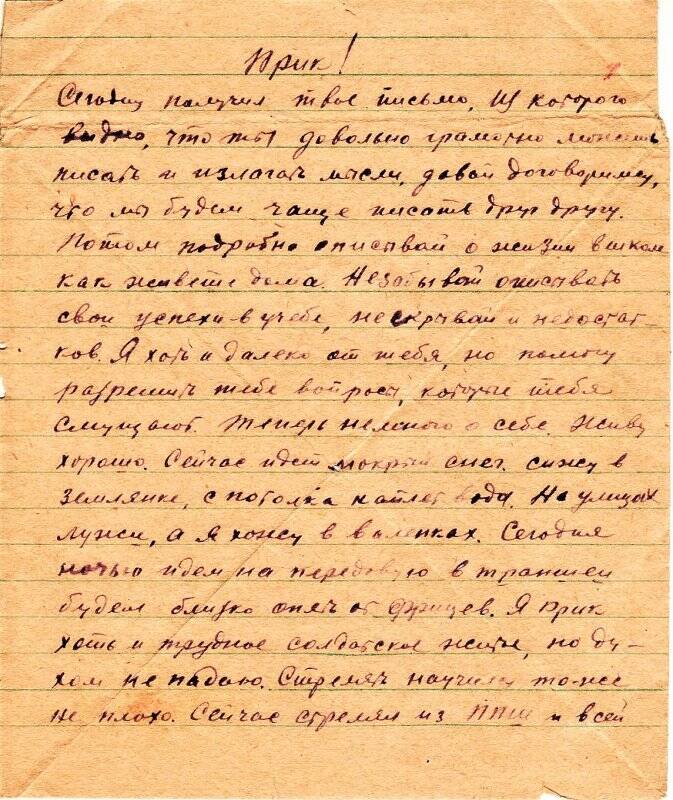 Юрик!
Сегодня получил твое письмо, из которого
видно, что ты довольно грамотно можешь
писать и излагать мысли, давай договоримся,
что мы будем чаще писать друг другу.
Потом подробно описывай о жизни в школе
как живете дома. Незабывай описывать
свои успехи в учебе, нескрывай и недостат-
ков. Я хоть и далеко от тебя, но помогу
разрешить тебе вопросы, которые тебя
смущают. Теперь немного о себе. Живу
хорошо. Сейчас идет мокрый снег. сижу в
землянке, с потолка каплет вода. На улицах
лужи, а я хожу в валенках. Сегодня
ночью идем на передовую в траншеи
будем близко опять от фрицев. Я Юрик
хоть и трудное солдатское житье, но ду-
хом не падаю. Стрелять научился тоже
не плохо. Сейчас стрелял из ППШ и всей